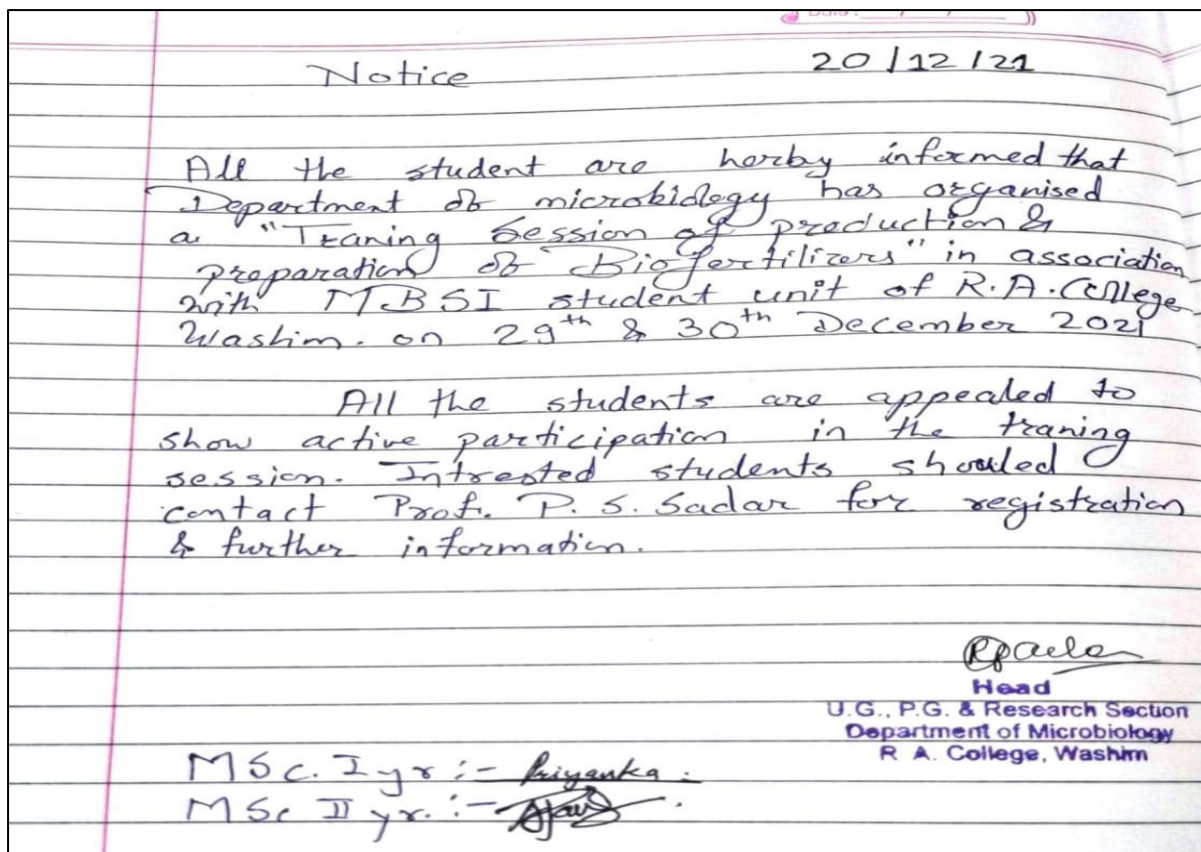 Notice 20/12/21
All the student are herby informed that
Department of microbiology has organised
a "Traning Session of production &
preparation of Biofertilizers" in association
with MBSI student unit of R.A. College
Washim. on 29th & 30th December 2021
All the students are appealed to
show active participation in the traning
session. Intrested students shouled
contact Prof. P. S. Sadar for registration
& further information.
Head
U.G., P.G. & Research Section
Department of Microbiology
R A. College, Washim
MSc. I yr :- Priyanka.
MSc II yr. :-